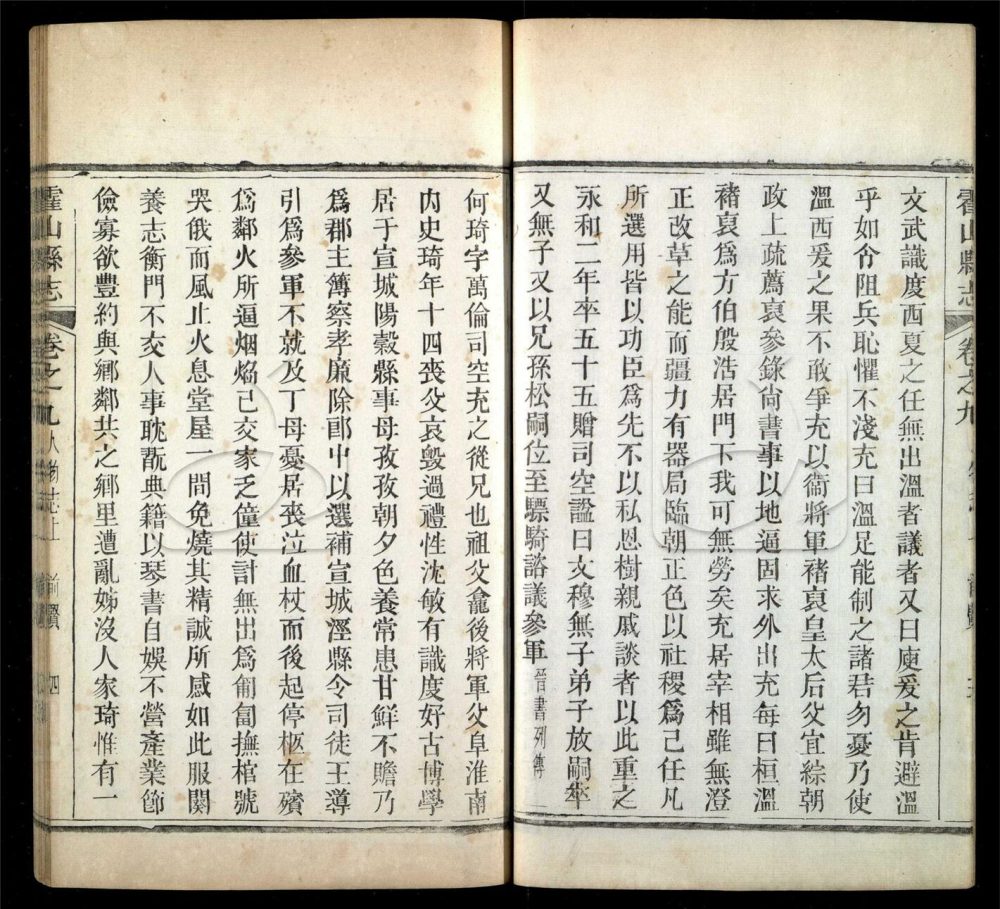 霍山縣志 卷之九
文武識度西夏之任無出溫者議者又曰庾爰之肯避溫
乎如令阻兵恥懼不淺充曰溫足能制之諸君勿憂乃使
溫西爰之果不敢爭充以衞將軍褚裒皇太后父宜綜朝
政上疏薦裒參錄尙書事以地逼固求外出充每曰桓溫
褚裒爲方伯殷浩居門下我可無勞矣充居宰相雖無澄
正改草之能而疆力有器局臨朝正色以社稷爲己任凡
所選用皆以功臣爲先不以私恩樹親戚談者以此重之
永和二年卒五十五贈司空謚曰文穆無子弟子放嗣卒
又無子又以兄孫松嗣位至驃騎諮議參軍晉書列傳
何琦字萬倫司空充之從兄也祖父龕後將軍父阜淮南
內史琦年十四喪父哀毀過禮性沈敏有識度好古博學
居于宣城陽穀縣事母孜孜朝夕色養常患甘鮮不贍乃
爲郡主簿察孝廉除郎中以選補宣城涇縣令司徒王導
引爲參軍不就及丁母憂居喪泣血杖而後起停柩在殯
爲鄰火所逼烟焰已交家乏僮使計無出爲匍匐撫棺號
哭俄而風止火息堂屋一間免燒其精誠所感如此服闋
養志衡門不交人事耽翫典籍以琴書自娛不營產業節
儉寡欲豐約與鄉鄰共之鄉里遭亂姊沒人家琦惟有一
霍山縣志 卷之九 人物志上 前賢 四